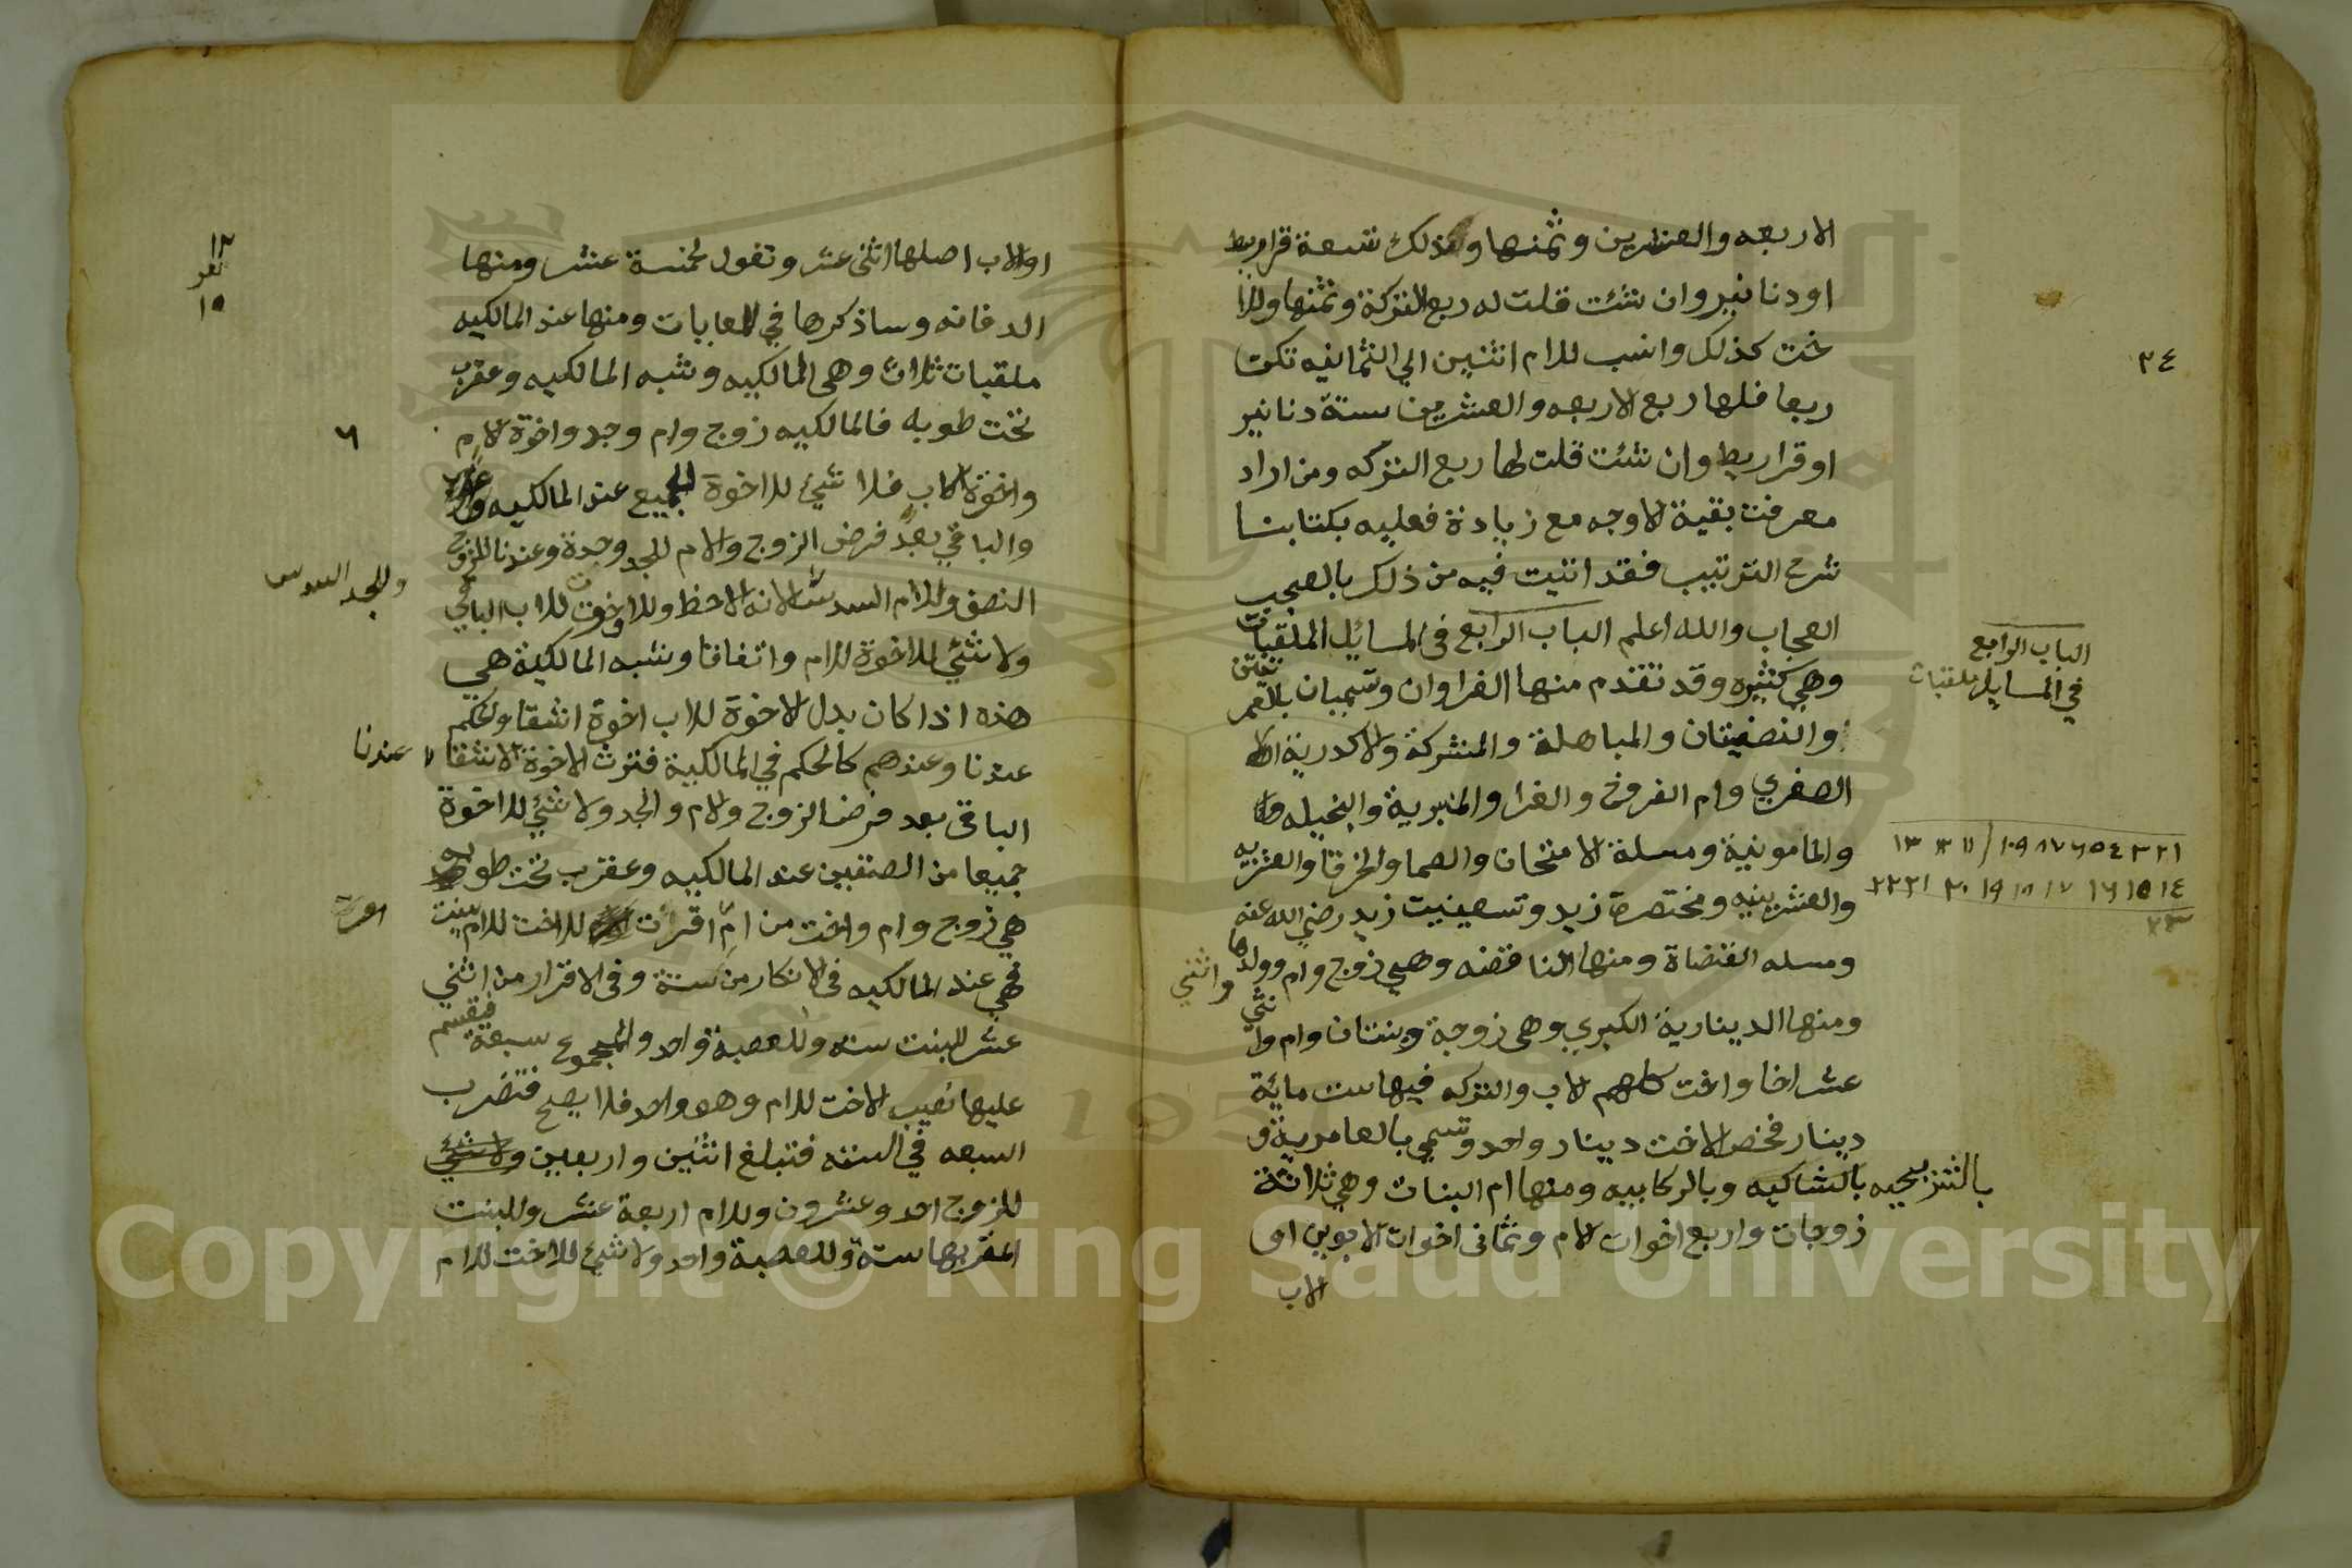 الاربعه والعشرين وثمنها وكذلك تسعة قراريط
او دنانير وان شئت قلت له ربع التركة وثمنها وللا
خت كذلك وانسب للام اثنين الي الثمانيه تكن
ربعا فلها ربع الاربعه والعشرين ستة دنانير
او قراريط وان شئت قلت لها ربع التركه ومن اراد
معرفت بقية الاوجه مع زيادة فعليه بكتابنا
شرح الترتيب فقد اتيت فيه من ذلك بالعجب
العجاب والله اعلم الباب الرابع في المسائل الملقبات
وهي كثيره وقد تقدم منها الغراوان وتسميان بالعمريتين
والنصفيتان والمباهلة والمشركة والاكدرية
الصغري وام الفروخ والغرا والمنبرية والبخيله
والمامونية ومسلة الامتحان والصما والخرقا والعشريه
والعشرينيه ومختصرة زيد وتسعينيت زيد رضي الله عنه
ومسله القضاة ومنها الناقضه وهي زوج وام وولداها
ومنها الدينارية الكبري وهي زوجة وبنتان وام واثني
واثني
عشر اخا واخت كلهم لاب والتركه فيها ست مائة
دينار فخص الاخت دينار واحد وتسمي بالعامرية و
بالشريحيه بالشاكيه وبالركابيه ومنها ام البنات وهي ثلاثة
زوجات واربع اخوات لام وثماني اخوات لابوين او
لاب
٢٤
الباب الرابع
في المسايل ملقبات
١ ٢ ٣ ٤ ٥ ٦ ٧ ٨ ٩ ١٠ ١١ ١٢ ١٣
١٤ ١٥ ١٦ ١٧ ١٨ ١٩ ٢٠ ٢١ ٢٢
٢٣
او لاب اصلها اثني عشر وتعول لخمسة عشر ومنها
الدفانه وساذكرها في المعايات ومنها عند المالكيه
ملقبات ثلاث وهي المالكيه وشبه المالكيه وعقرب
تحت طوبه فالمالكيه زوج وام وجد واخوة لام
واخوة لاب فلا شيئ للاخوة الجميع عند المالكيه
والباقي بعد فرض الزوج والام للجد وحده وعندنا للزوج
النصف وللام السدس لانه الاحظ وللاخوة للاب الباقي
ولا شيئ للاخوة للام واتفاقا وشبه المالكية هي
هذه اذا كان بدل الاخوة للاب اخوة اشقا والحكم
عندنا وعندهم كالحكم في المالكية فترث الاخوة الاشقا
الباقي بعد فرض الزوج والام والجد ولا شيئ للاخوة
جميعا من الصنفين عند المالكيه وعقرب تحت طوبه
هي زوج وام واخت من ام اقرت الاخت للام ببنت
فهي عند المالكيه في الانكار من ستة وفي الاقرار من اثني
عشر للبنت سته وللعصبة واحد والمجموع سبعة فيقسم
عليها نصيب الاخت للام وهو واحد فلا يصح فتضرب
السبعه في الستة فتبلغ اثنين واربعين ولا شيئ
للزوج احد وعشرون وللام اربعة عشر وللبنت
المقر بها ستة وللعصبة واحد ولا شيئ للاخت للام
١٢
١٥
٦
وللجد السدس
عندنا
Copyright © King Saud University